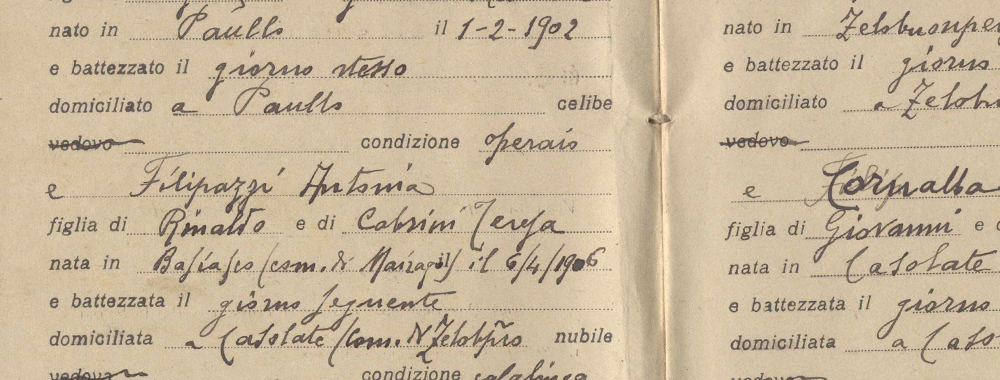 nato in Paullo il 1-2-1902
e battezzato il giorno stesso
domiciliato a Paullo celibe
vedovo condizione operaio
e Filipazzi Antonia
figlia di Rinaldo e di Cabrini Teresa
nata in Basiasco (com. di Mairago) il 6/4/1906
e battezzata il giorno seguente
domiciliata a Casolate (Com. di Zelobp̃rs nubile
vedova condizione
nato in Zelobuonper
e battezzato il giorno
domiciliato a Zelob
vedovo
e Cornalba
figlia di Giovanni e
nata in Casolate
e battezzata il giorno
domiciliata a Caso